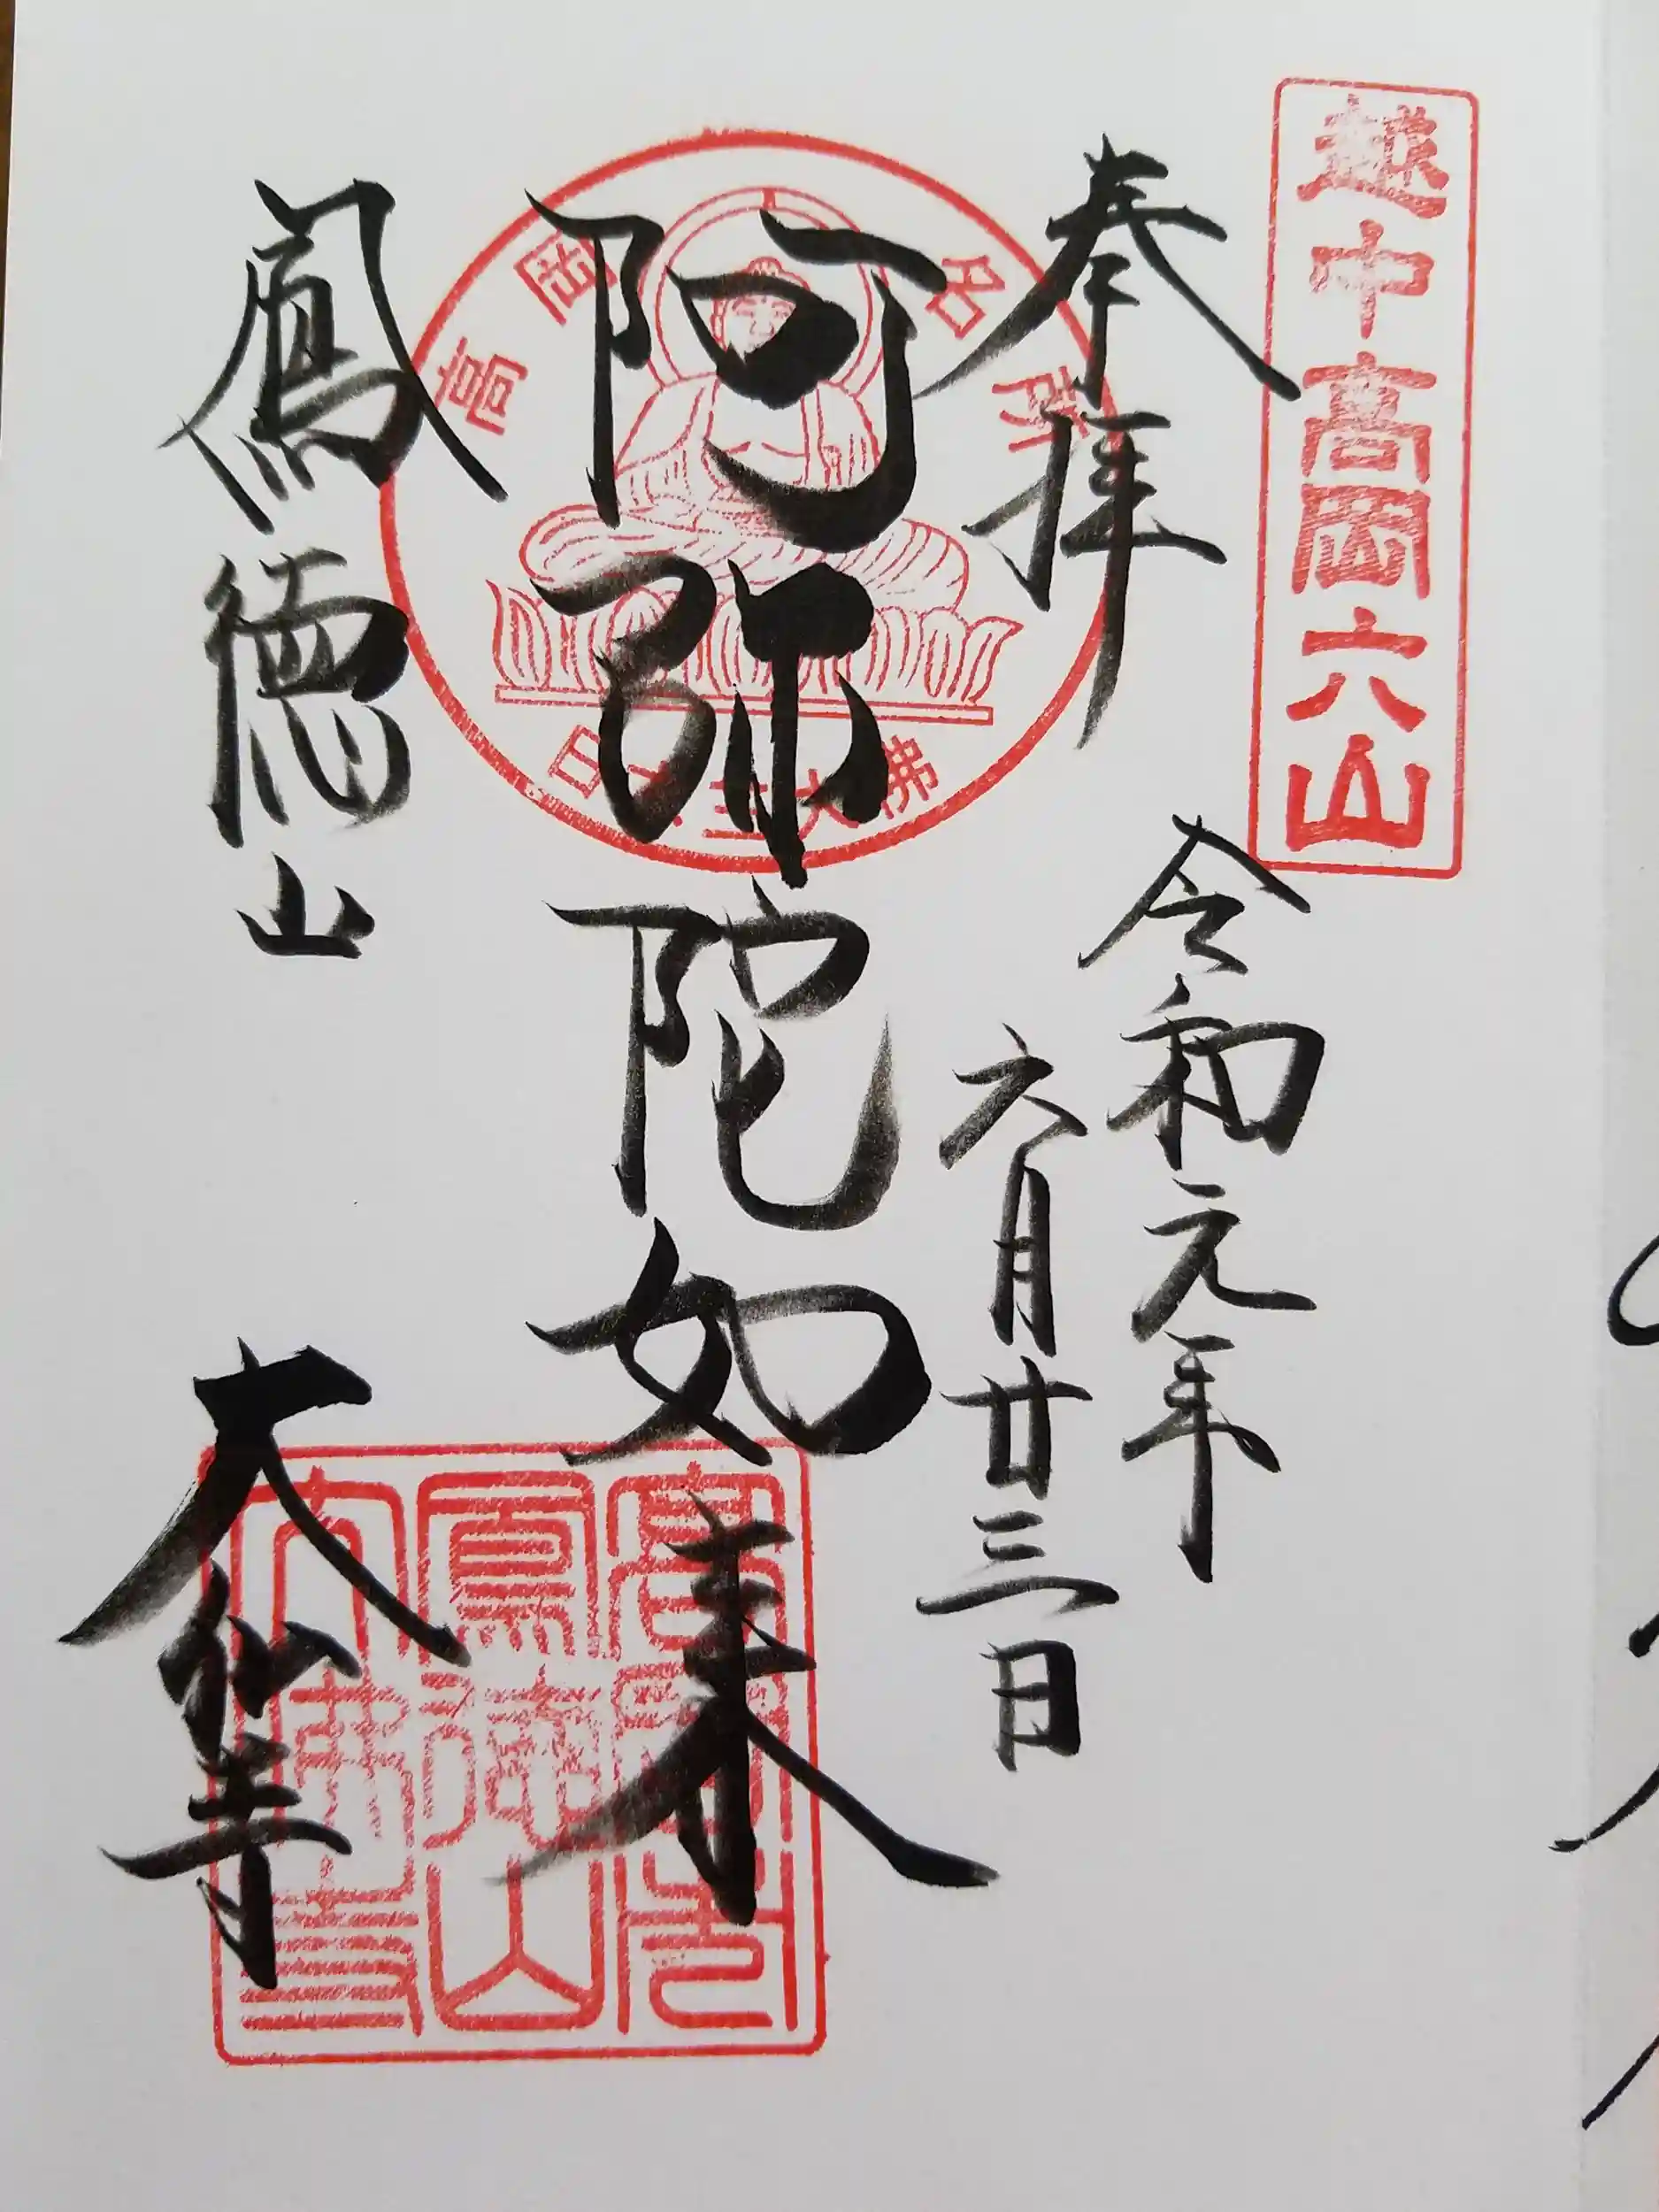 越中高岡六山
奉拝
令和元年
六月廿三日
高岡名所
日本三大佛
阿弥陀如来
鳳徳山
大仙寺
鳳徳山